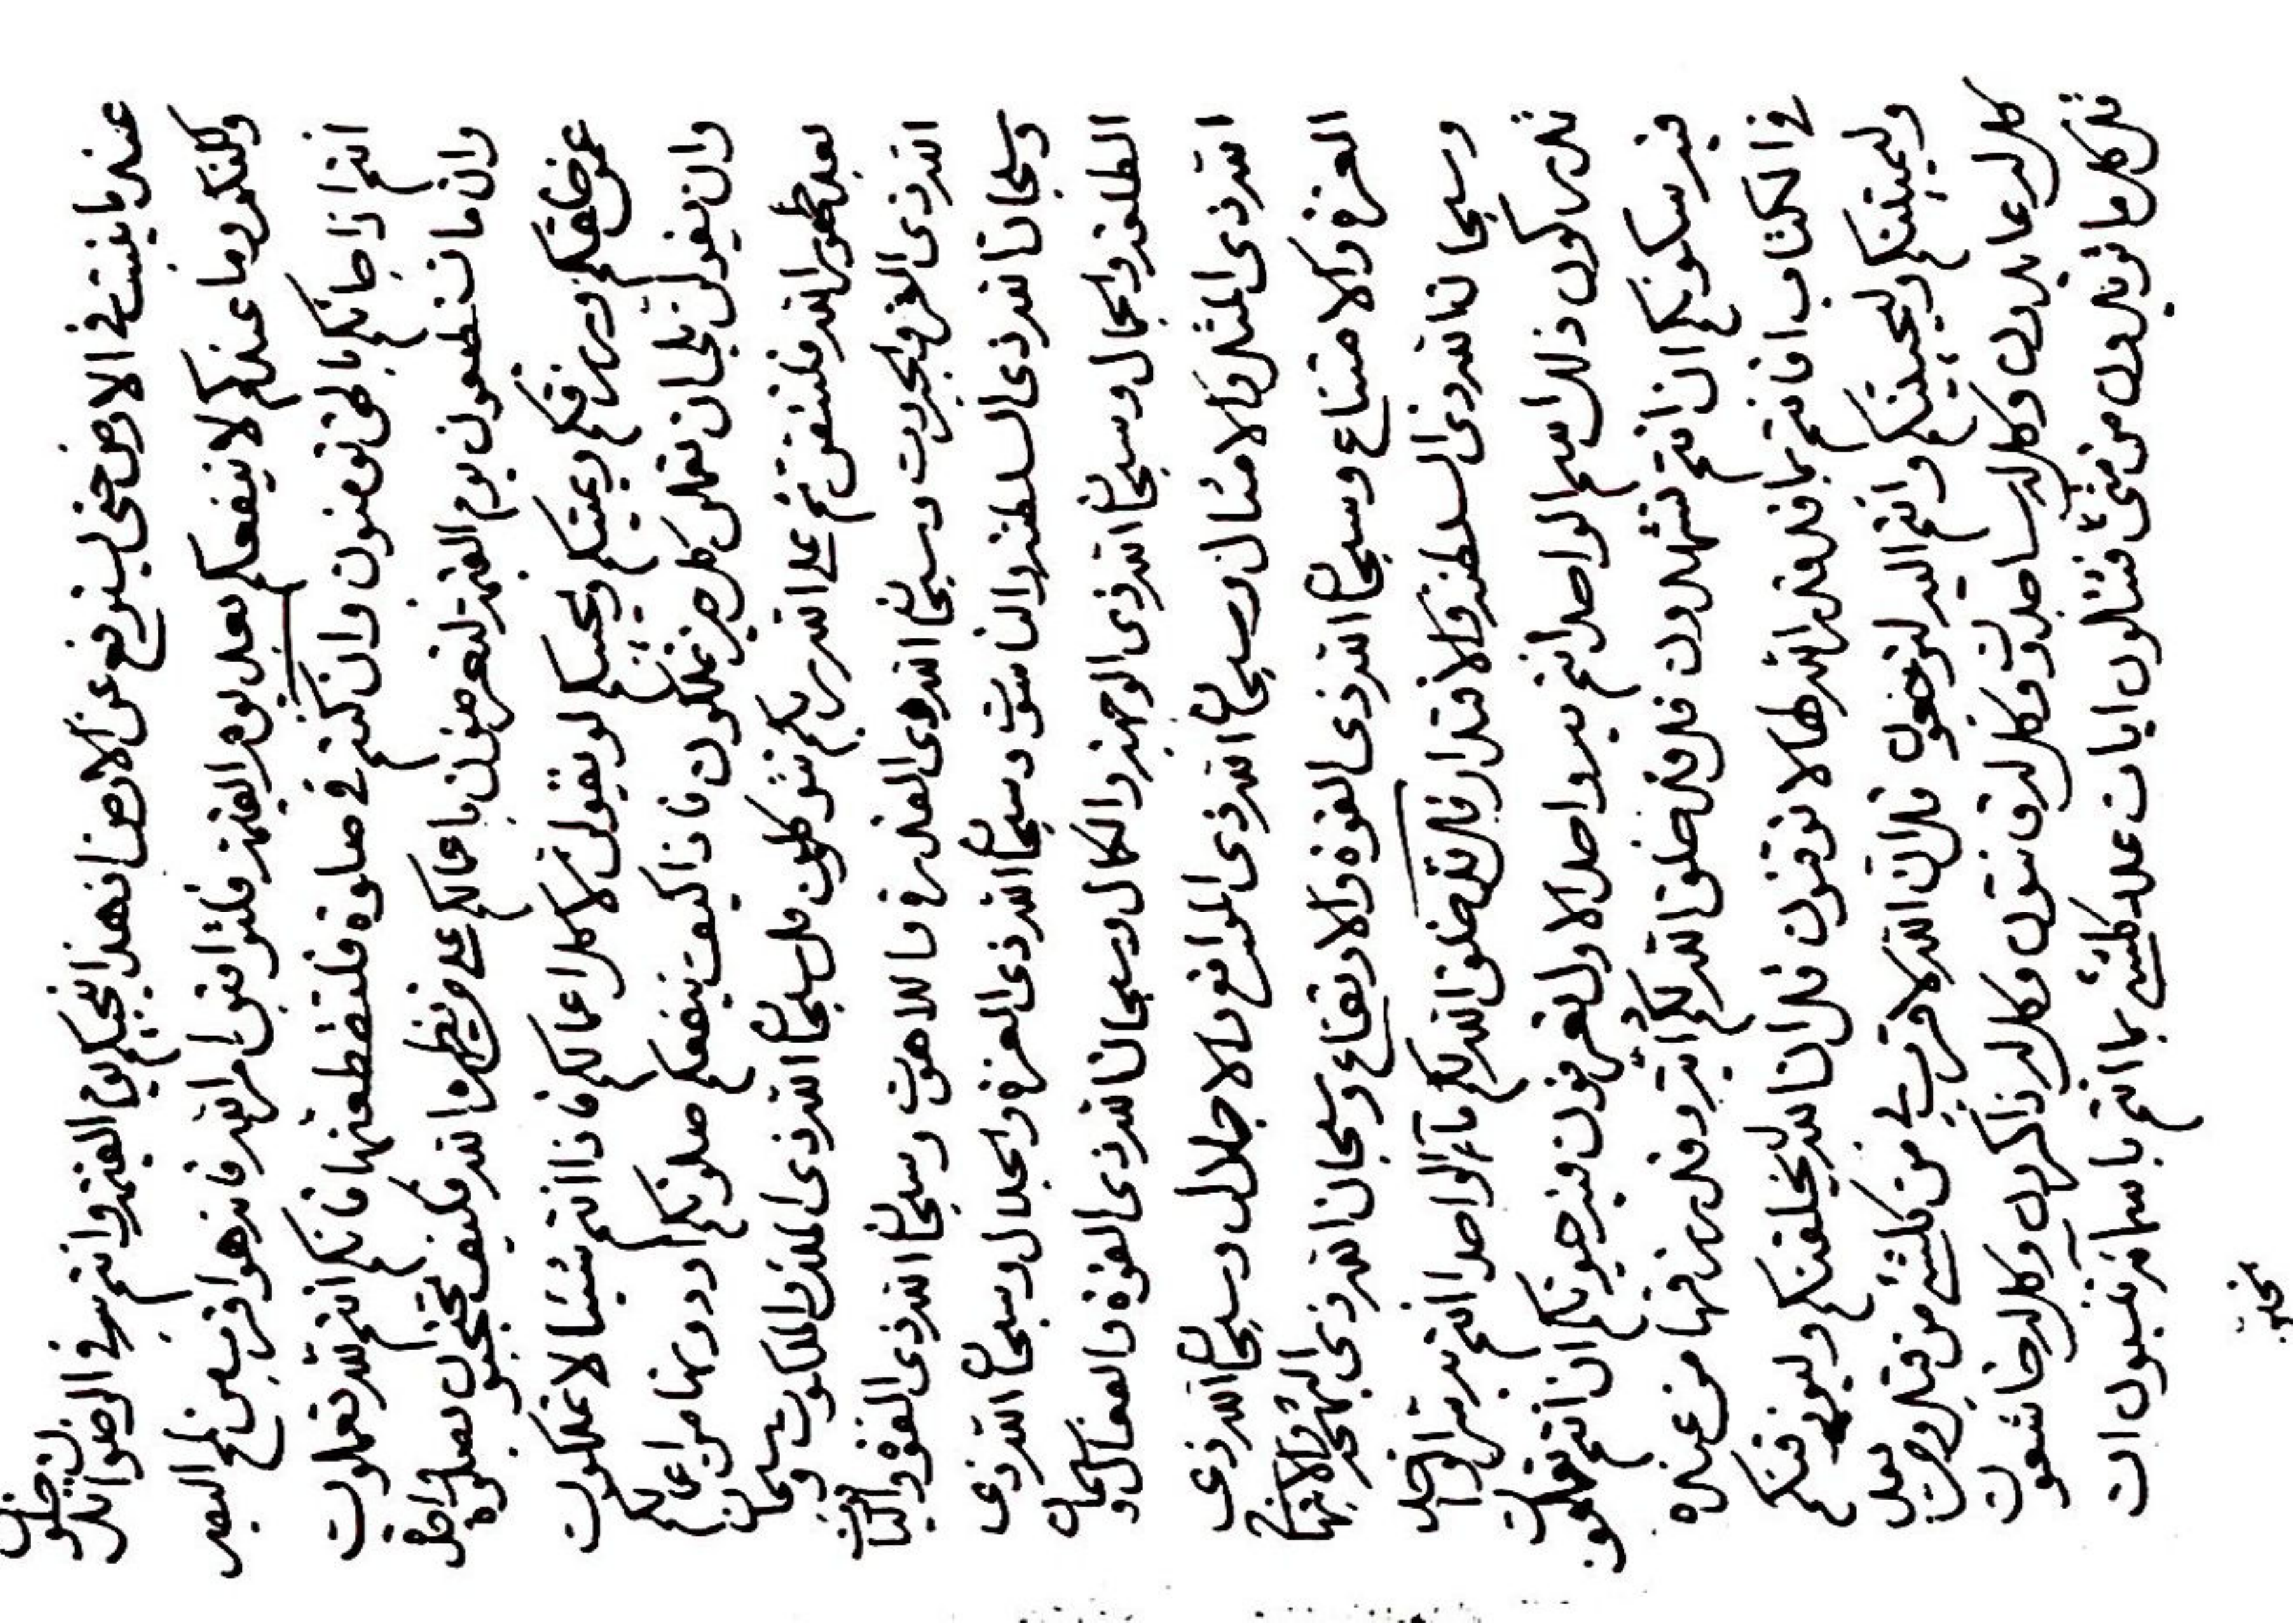 عند ما ينبت فى الارض حتى لينرفع عن الارض انهذا لنجيكم يوم القيمة وانتم فى الرضوان لتدخلون
ما عندكم لا ينفعكم بعد يوم القيمة فلتراقبن امر الله فانها اقرب من لمح البصر
انتم اذا جائكم بالحق تؤمنون وان كنتم فى صلوة فلتقطعنها فانكم انتم لله تعملون
وان ما تنطقون يوم القيمة لتعرضون باعمالكم على من يظهره الله فكيف تحتجبون بصلوة واحدة
عمن خلقكم ورزقكم ويميتكم ويحييكم لو يقولن لا كل اعمالكم فاذا انتم شيئا لا تملكون
وان يقولن بلى ان كل خير تملكون فاذا كيف ينفعكم صلوتكم او دونها من اعمالكم
بعد ظهور الله فلتتقن ثم على الله ربكم تتوكلون قل سبحان الله ذى الملك والملكوت وسبحان
الله ذى العز والجبروت وسبحان الله ذى القدرة واللاهوت وسبحان الله ذى القوة والياقوت
وسبحان الله ذى السلطنة والناسوت وسبحان الله ذى العزة والجلال وسبحان الله ذى
الطلعة والجمال وسبحان الله ذى الوجهة والكمال وسبحان الله ذى القوة والفعال وسبحان
الله ذى المثل والامثال وسبحان الله ذى المواقع والاجلال وسبحان الله ذى
العزة والامتناع وسبحان الله ذى القوة والارتفاع وسبحان الله ذى البهجة والابتهاج
وسبحان الله ذى السلطنة والاقتدار قل قد خلق الله لكم ماء الواحد انتم الواحد
تدركون ذلك اسم الواحد انتم به واحد الاول تعرفون ان انتم تعلمون
ان انتم تشهدون قل قد خلق الله لكم وقد رزقها من عنده
فى الكتاب افانتم بما قد قدر الله لها لا توقنون قل ان الله ليخلقنكم وليرزقنكم
وليميتنكم وليحيينكم وانتم اليه لترجعون قل ان الله لاقرب بى من كلشئ من قبل ومن بعد
كل له عابدون وكل له ساجدون وكل له قانتون وكل له ذاكرون وكل له خاشعون
قل كل ما تريدون من شئ فتتلون ايات عدد كلشئ بما انتم باسماء تنسبون ان
تحبون